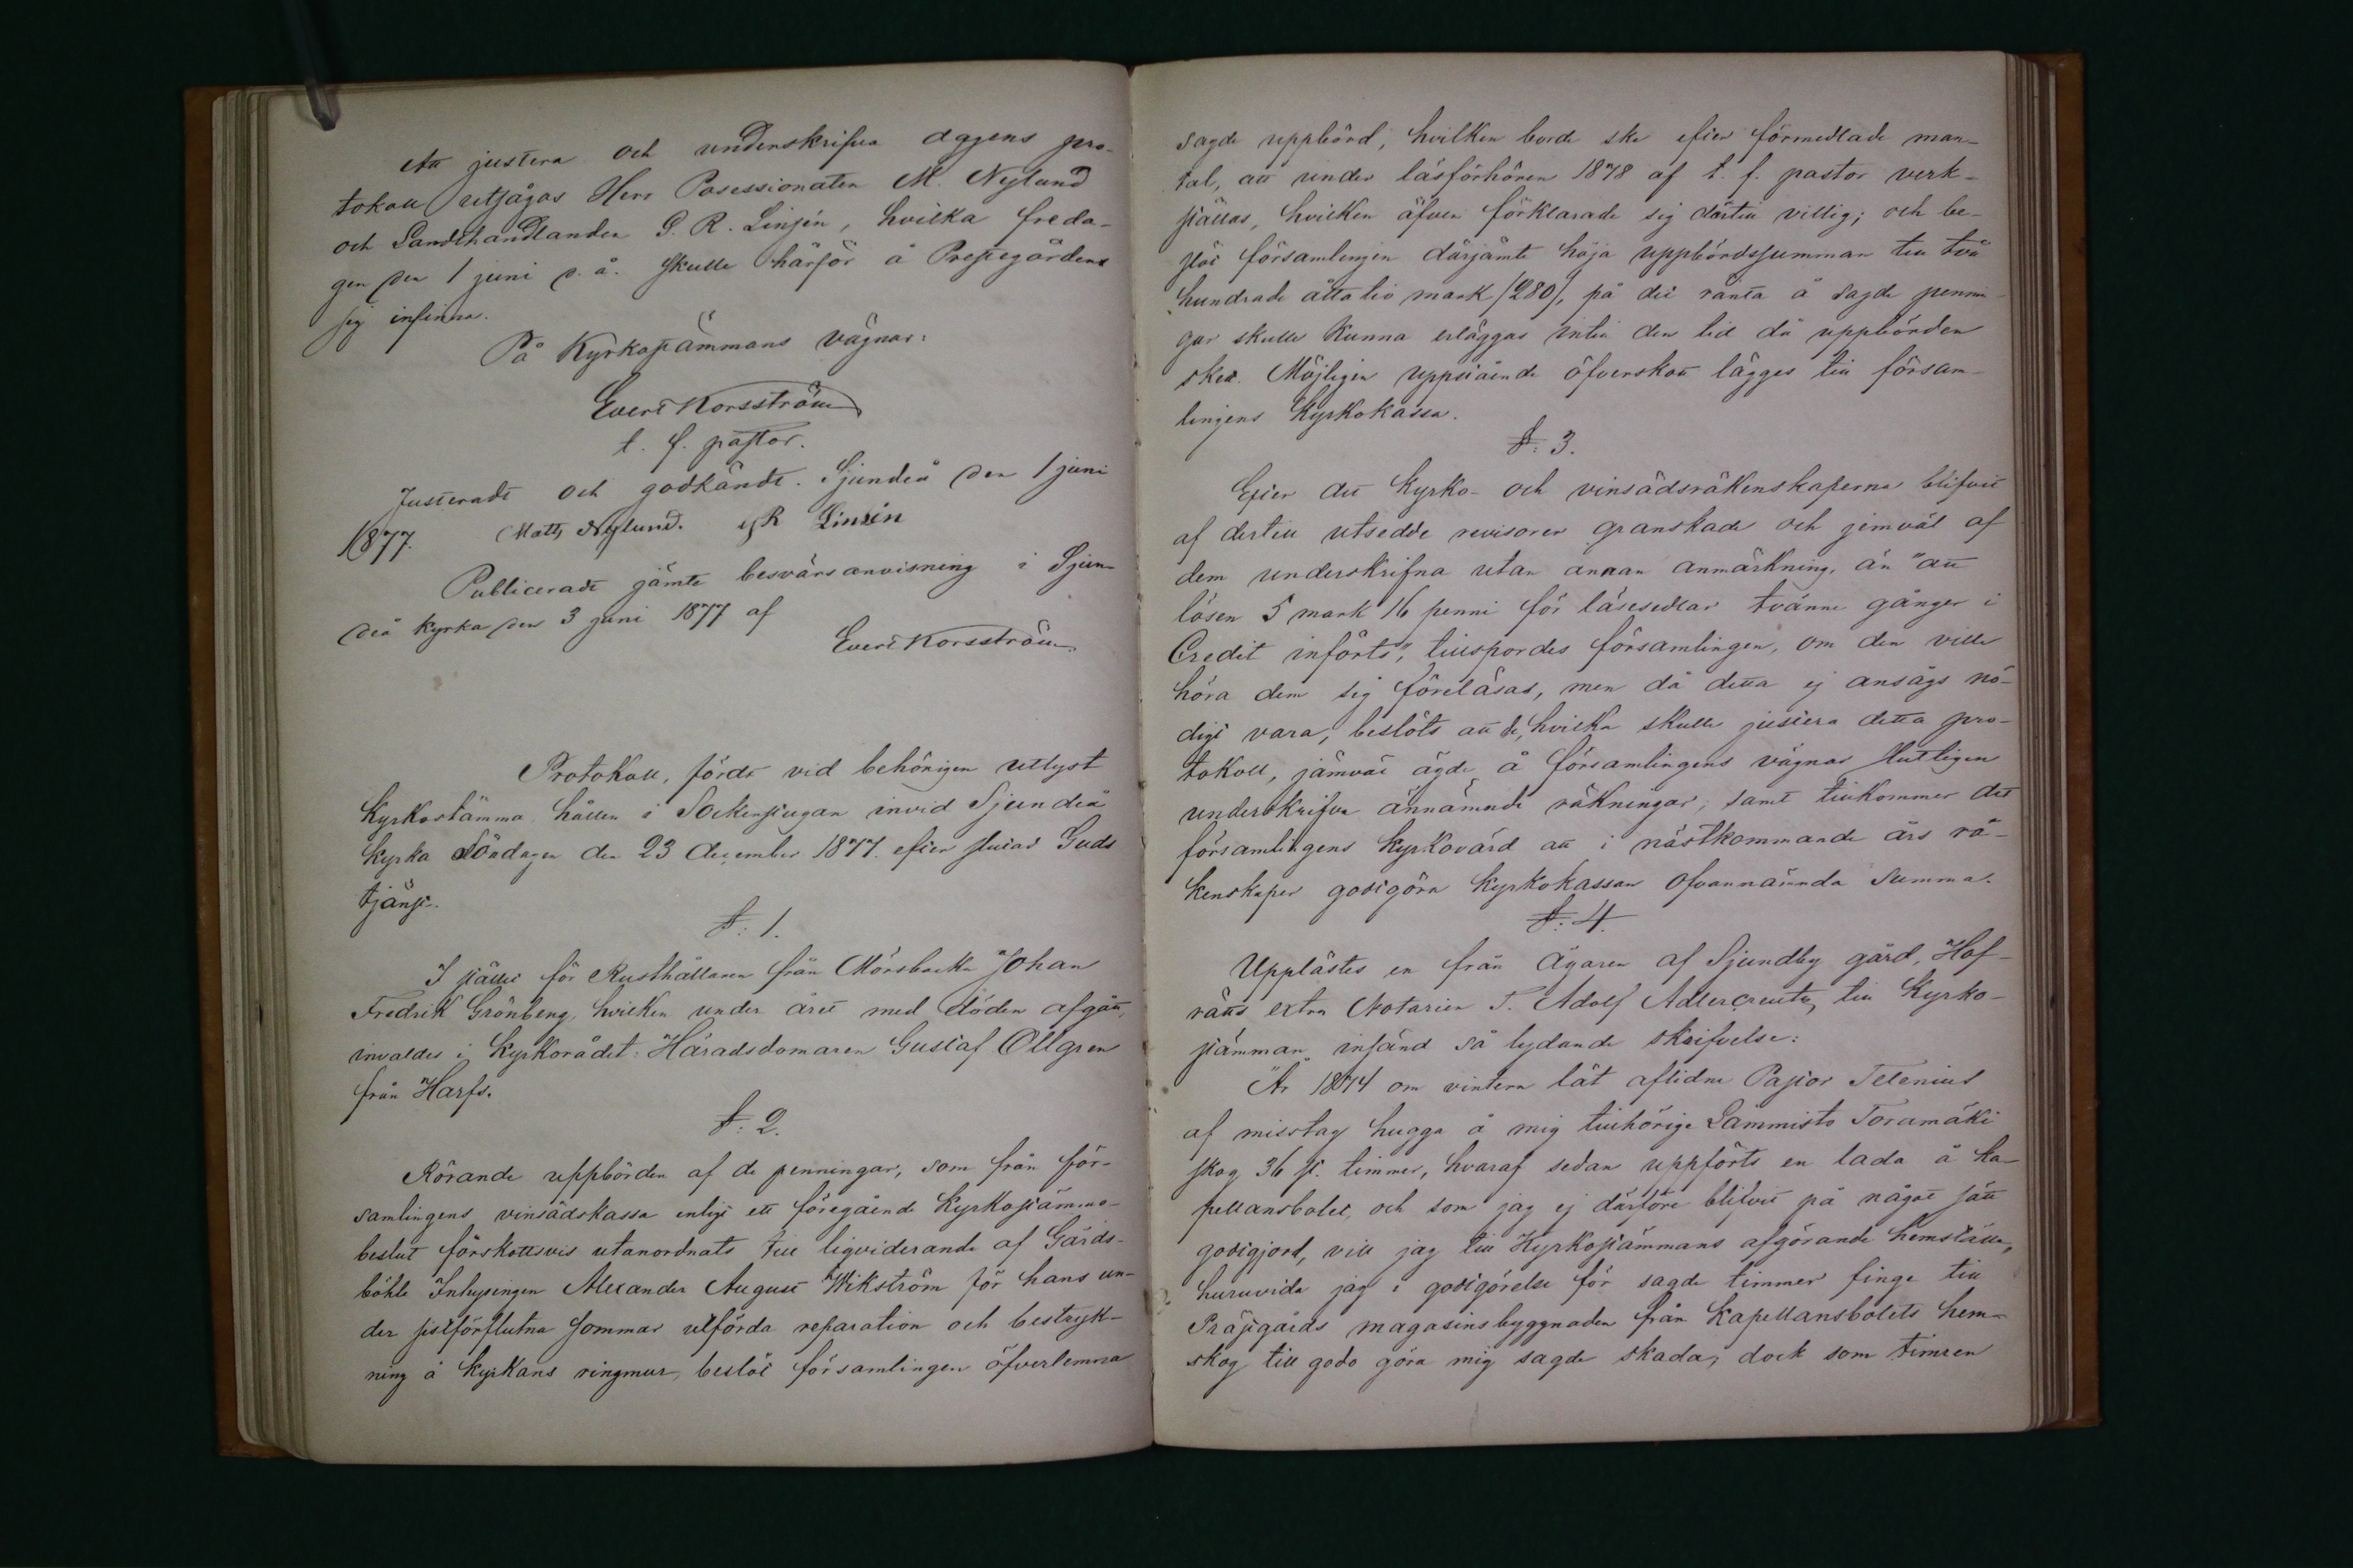 Att justera och underskrifva dagens pro-
tokoll utsågos Herr Posessionaten M. Nylund
och Landthandlanden G. R. Linsén, hvilka freda-
gen den 1 juni d. å. skulle härför å Prestegården
sig infinna.
På Kyrkostämmans vägnar:
Evert Korsström
t. f. pastor.
Justeradt och godkändt. Sjundeå den 1 juni
1877. Matts Nylund. G R Linsén
Publiceradt jämte besvärsanvisning i Sjun-
deå kyrka den 3 juni 1877 af
Evert Korsström
Protokoll, fördt vid behörigen utlyst
Kyrkostämma hållen i Sockenstugan invid Sjundeå
kyrka Söndagen den 23 december 1877. efter slutad Guds
tjänst.
§: 1.
I stället för Rusthållaren från Mörsbacka Johan
Fredrik Grönberg, hvilken under året med döden afgått,
invaldes i Kyrkorådet: Häradsdomaren Gustaf Ollgren
från Harfs.
§: 2.
Rörande uppbörden af de penningar, som från för-
samlingens vinsädskassa enligt ett föregående Kyrkostämmo-
beslut förskottsvis utanordnats till liqviderande af Gårds-
böhle Inhysingen Alexander August Wikström för hans un-
der sistförflutna sommar utförda reparation och bestryk-
ning å kyrkans ringmur, beslöt församlingen öfverlemna
sagde uppbörd, hvilken borde ske efter förmedlade man-
tal, att under läsförhören 1878 af t. f. pastor verk-
ställas, hvilken äfven förklarade sig därtill villig; och be-
slöt församlingen därjämte höja uppbördssumman till två
hundrade åttatio mark /280/, på det ränta å sagde pennin-
gar skulle kunna erläggas intill den tid då uppbörden
sker. Möjligen uppstående öfverskott lägges till försam-
lingens Kyrkokassa.
§: 3.
Efter det Kyrko- och vinsädsräkenskaperna blifvit
af dertill utsedde revisorer granskade och jemväl af
dem underskrifna utan annan anmärkning, än "att
lösen 5 mark 16 penni för läsesedlar tvänne gånger i
Credit införts", tillspordes församlingen, om den ville
höra dem sig föreläsas, men då detta ej ansågs nö-
digt vara, beslöts att de, hvilka skulle justera detta pro-
tokoll, jämväl ägde å församlingens vägnar slutligen
underskrifva ännämnde räkningar; samt tillkommer det
församlingens Kyrkovärd att i nästkommande års rä-
kenskaper godtgöra Kyrkokassan ofvannämnda summa.
§: 4.
Upplästes en från Ägaren af Sjundby gård, Hof-
rätts extra Notarien T. Adolf Adlercreutz, till Kyrko-
stämman insänd så lydande skrifvelse:
"År 1874 om vintern lät aflidne Pastor Telenius
af misstag hugga å mig tillhörige Lammisto Toramäki
skog 36 st. timmer, hvaraf sedan uppförts en lada å Ka-
pellansbolet, och som jag ej därföre blifvit på något sätt
godtgjord, vill jag till Kyrkostämmans afgörande hemställa,
huruvida jag i godtgörelse för sagde timmer finge till
Prästgårds magasinsbyggnaden från Kapellansbolets hem-
skog till godo göra mig sagde skada; dock som timren